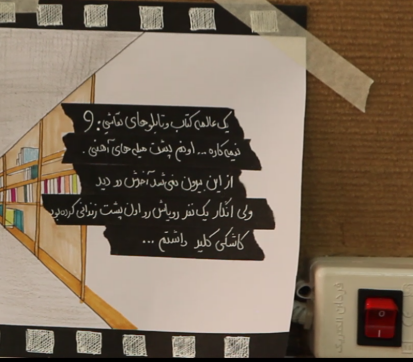 یک عالمه کتاب و تابلوهای نقاشی: و
نیمه‌کاره... اونم پشت میله‌های آهنی.
از این بیرون نمی‌شد آخرش رو دید
ولی انگار یک نفر رویاش رو اون پشت زندانی کرده بود
کاشکی کلید داشتم...